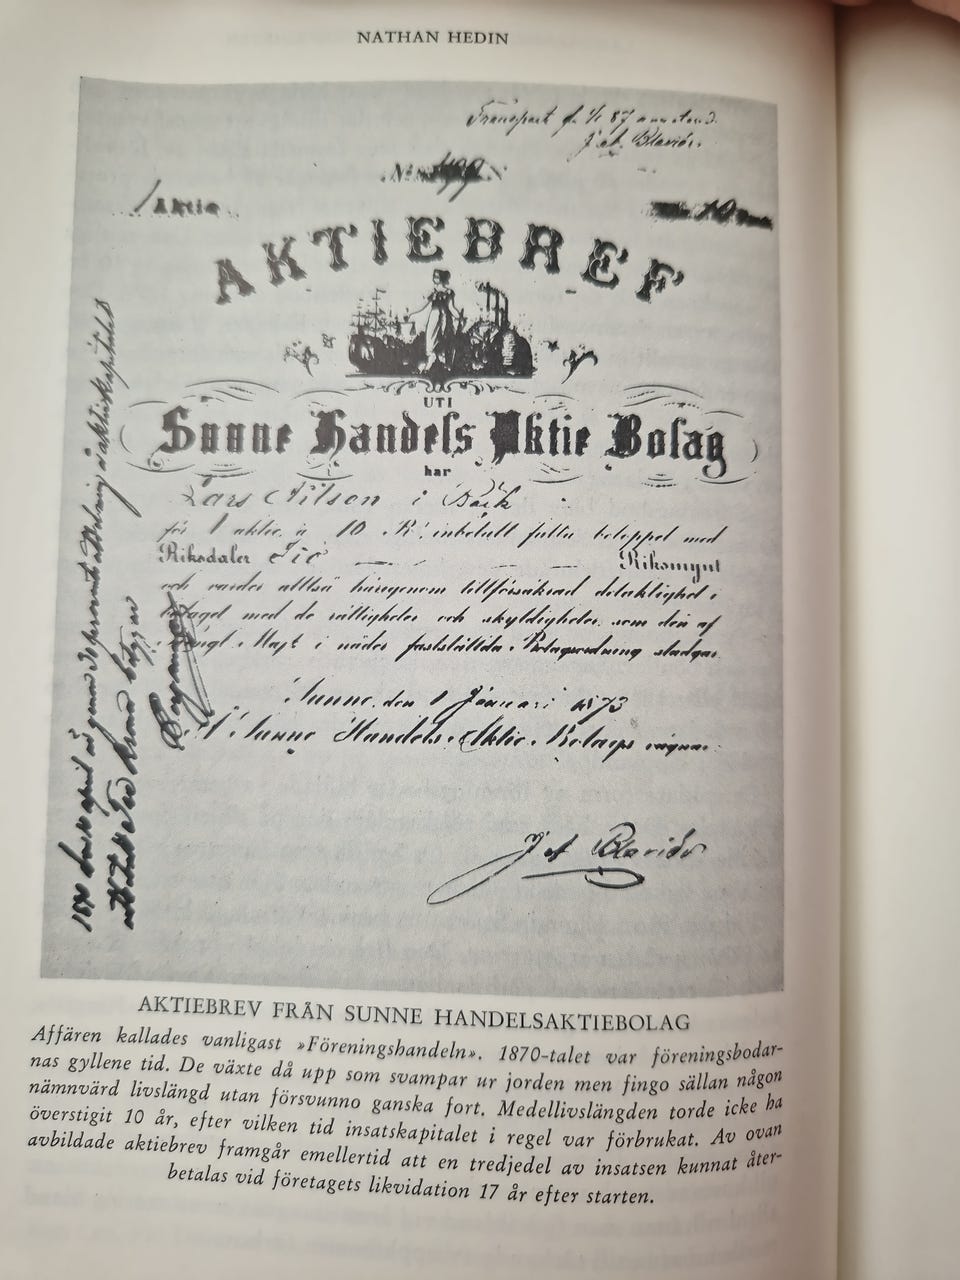 NATHAN HEDIN
Transport f.
J. A. Blavidr.
No 499
1 Aktie
10
AKTIEBREF
UTI
Sunne Handels Aktie Bolag
har
Lars Nilson i Bäck
för 1 aktie à 10 Rd, inbetalt fulla beloppet med
Riksdaler Tio Riksmynt
och varder alltså härigenom tillförsäkrad delaktighet i
bolaget med de rättigheter och skyldigheter, som den af
Kongl. Maj:t i nåder fastställda Bolagsordning stadgar.
Sunne, den 1 Januari 1873
Sunne Handels-Aktie-Bolags vägnar:
J A Blavidr
1890 april
AKTIEBREV FRÅN SUNNE HANDELSAKTIEBOLAG
Affären kallades vanligast »Föreningshandeln». 1870-talet var föreningsbodar-
nas gyllene tid. De växte då upp som svampar ur jorden men fingo sällan någon
nämnvärd livslängd utan försvunno ganska fort. Medellivslängden torde icke ha
överstigit 10 år, efter vilken tid insatskapitalet i regel var förbrukat. Av ovan
avbildade aktiebrev framgår emellertid att en tredjedel av insatsen kunnat åter-
betalas vid företagets likvidation 17 år efter starten.